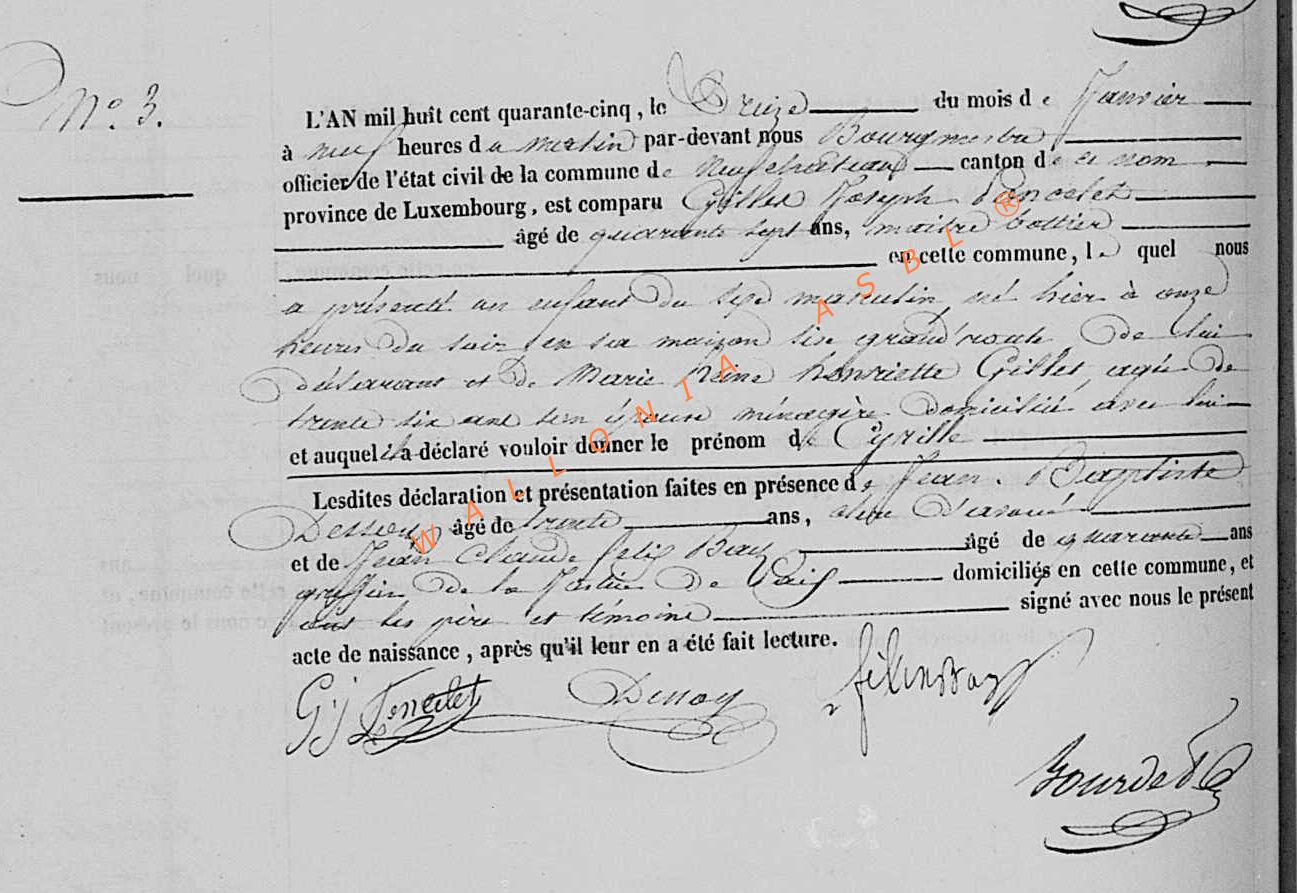 N.o 3.
L'AN mil huit cent quarante-cinq, le Treize du mois de Janvier
à neuf heures du matin par-devant nous Bourgmestre
officier de l'état civil de la commune de Neufchâteau canton de ce nom
province de Luxembourg, est comparu Gilles Joseph
âgé de quarante sept ans, maitre bottier
en cette commune, le quel nous
a présenté un enfant du sexe masculin né hier à onze
heures du soir en sa maison sise grand'route de lui
déclarant et de Marie Reine henriette Gillet agée de
trente six ans son épouse ménagère domiciliée avec lui
et auquel il a déclaré vouloir donner le prénom de Cyrille
Lesdites déclaration et présentation faites en présence de Jean Baptiste
Dessoy âgé de trente ans, d'avoué
et de Jean Claude felix âgé de quarante ans
greffier de la Justice de Paix domiciliés en cette commune, et
ont les père et témoins signé avec nous le présent
acte de naissance, après qu'il leur en a été fait lecture.
G J Dessoy
WALLONIA ASBL ®